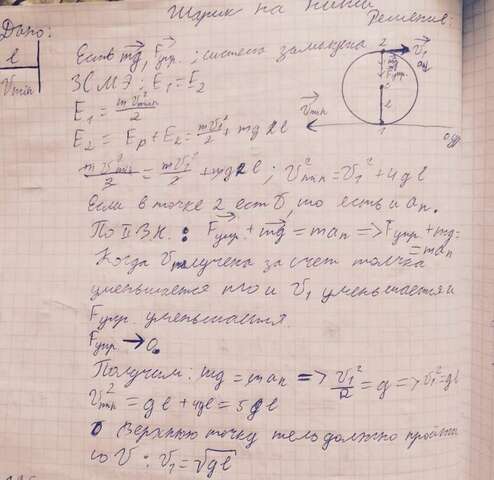 Шарик на нити
Дано: Решение:
l
V min
Есть mg, Fупр.; система замкнута
ЗСМЭ: E₁ = E₂
E₁ = mVmin²/2
E₂ = Eр + E₂ = mV₁²/2 + mg2l
mVmin²/2 = mV₁²/2 + mg2l; Vmin² = V₁² + 4gl
Если в точке 2 есть V, то есть и aₙ.
По II З.Н.: Fупр. + mg = maₙ => Fупр. + mg = maₙ
Когда V получена за счет толчка
уменьшается то и V₁ уменьшается и
Fупр. уменьшается.
Fупр. → 0.
Получим: mg = maₙ => V₁²/R = g => V₁² = gl
Vmin² = gl + 4gl = 5gl
Верхнюю точку тело должно пройти
со V: V₁ = √gl
2
V₁
Fупр.
l
Vmin
1